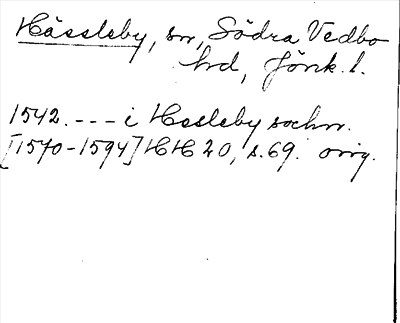 Hässleby, sn, Södra Vedbo
hrd, Jönk. l.
1542. --- i Hesleby sochn.
[1570-1594] HH 20, s. 69. orig.